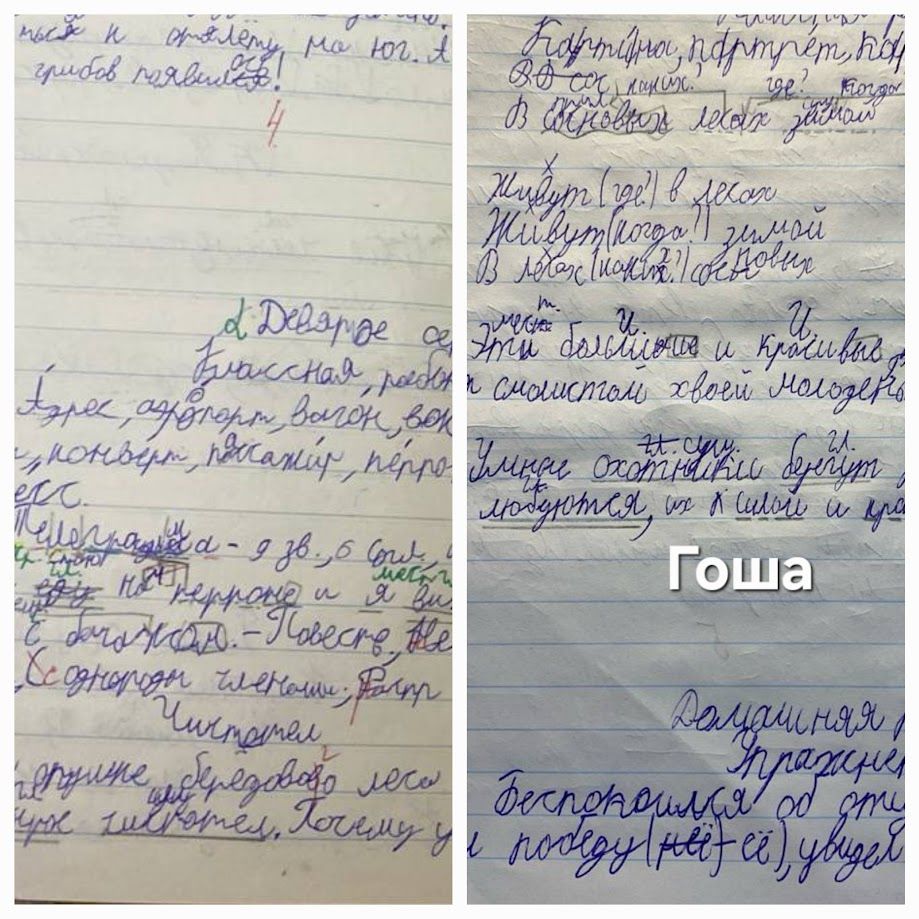 ться к отлёту на юг. А
грибов появилось!
4
Девятое се
Классная рабо
Адрес, аэропорт, вагон, вок
, конверт, пассажир, перро
- 9 зв., 6 согл.,
на перроне и я ви
С багажом. - Повеств., Не
однородн членами; Распр
Чистотел
опушке берёзового леса
чистотел. Почему у
Картина, портрет, кар
сос каких? где? когда
прил.
В сосновых лесах зимой
Живут (где?) в лесах
Живут (когда?) зимой
В лесах (каких?) сосновых
мест. И. И.
Эти большие и красивые
смолистой хвоей молоден
гл. сущ. гл.
Умные охотники бегут
любуются, их силой и кра
Гоша
Домашняя р
Упражнен
Беспокоился об отц
победу (неё) её), увидел